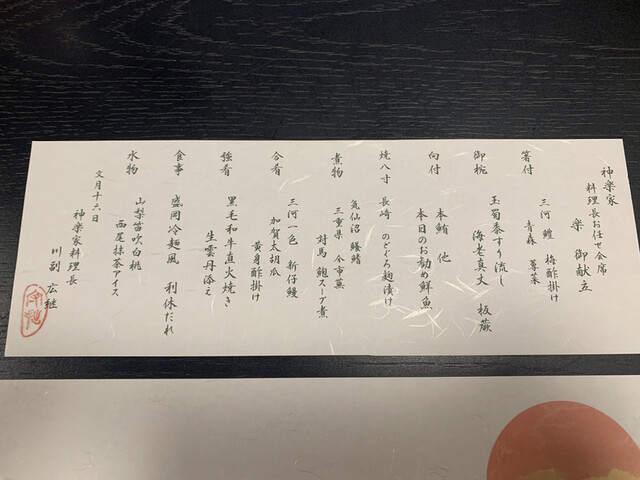 神楽家
料理長お任せ会席
楽 御献立
箸付
三河 鱧 梅酢掛け
青森 蓴菜
御椀
玉蜀黍すり流し
海老真丈 板蕨
向付
本鮪 他
本日のお勧め鮮魚
焼八寸 長崎 のどぐろ麹漬け
気仙沼 鱶鰭
煮物
三重県 今市蕪
対馬 鮑スープ煮
合肴
三河一色 新仔鰻
加賀太胡瓜
黄身酢掛け
強肴
黒毛和牛直火焼き
生雲丹添え
食事
盛岡冷麺風 利休だれ
水物
山梨笛吹白桃
西尾抹茶アイス
文月十六日
神楽家料理長
川副 広継